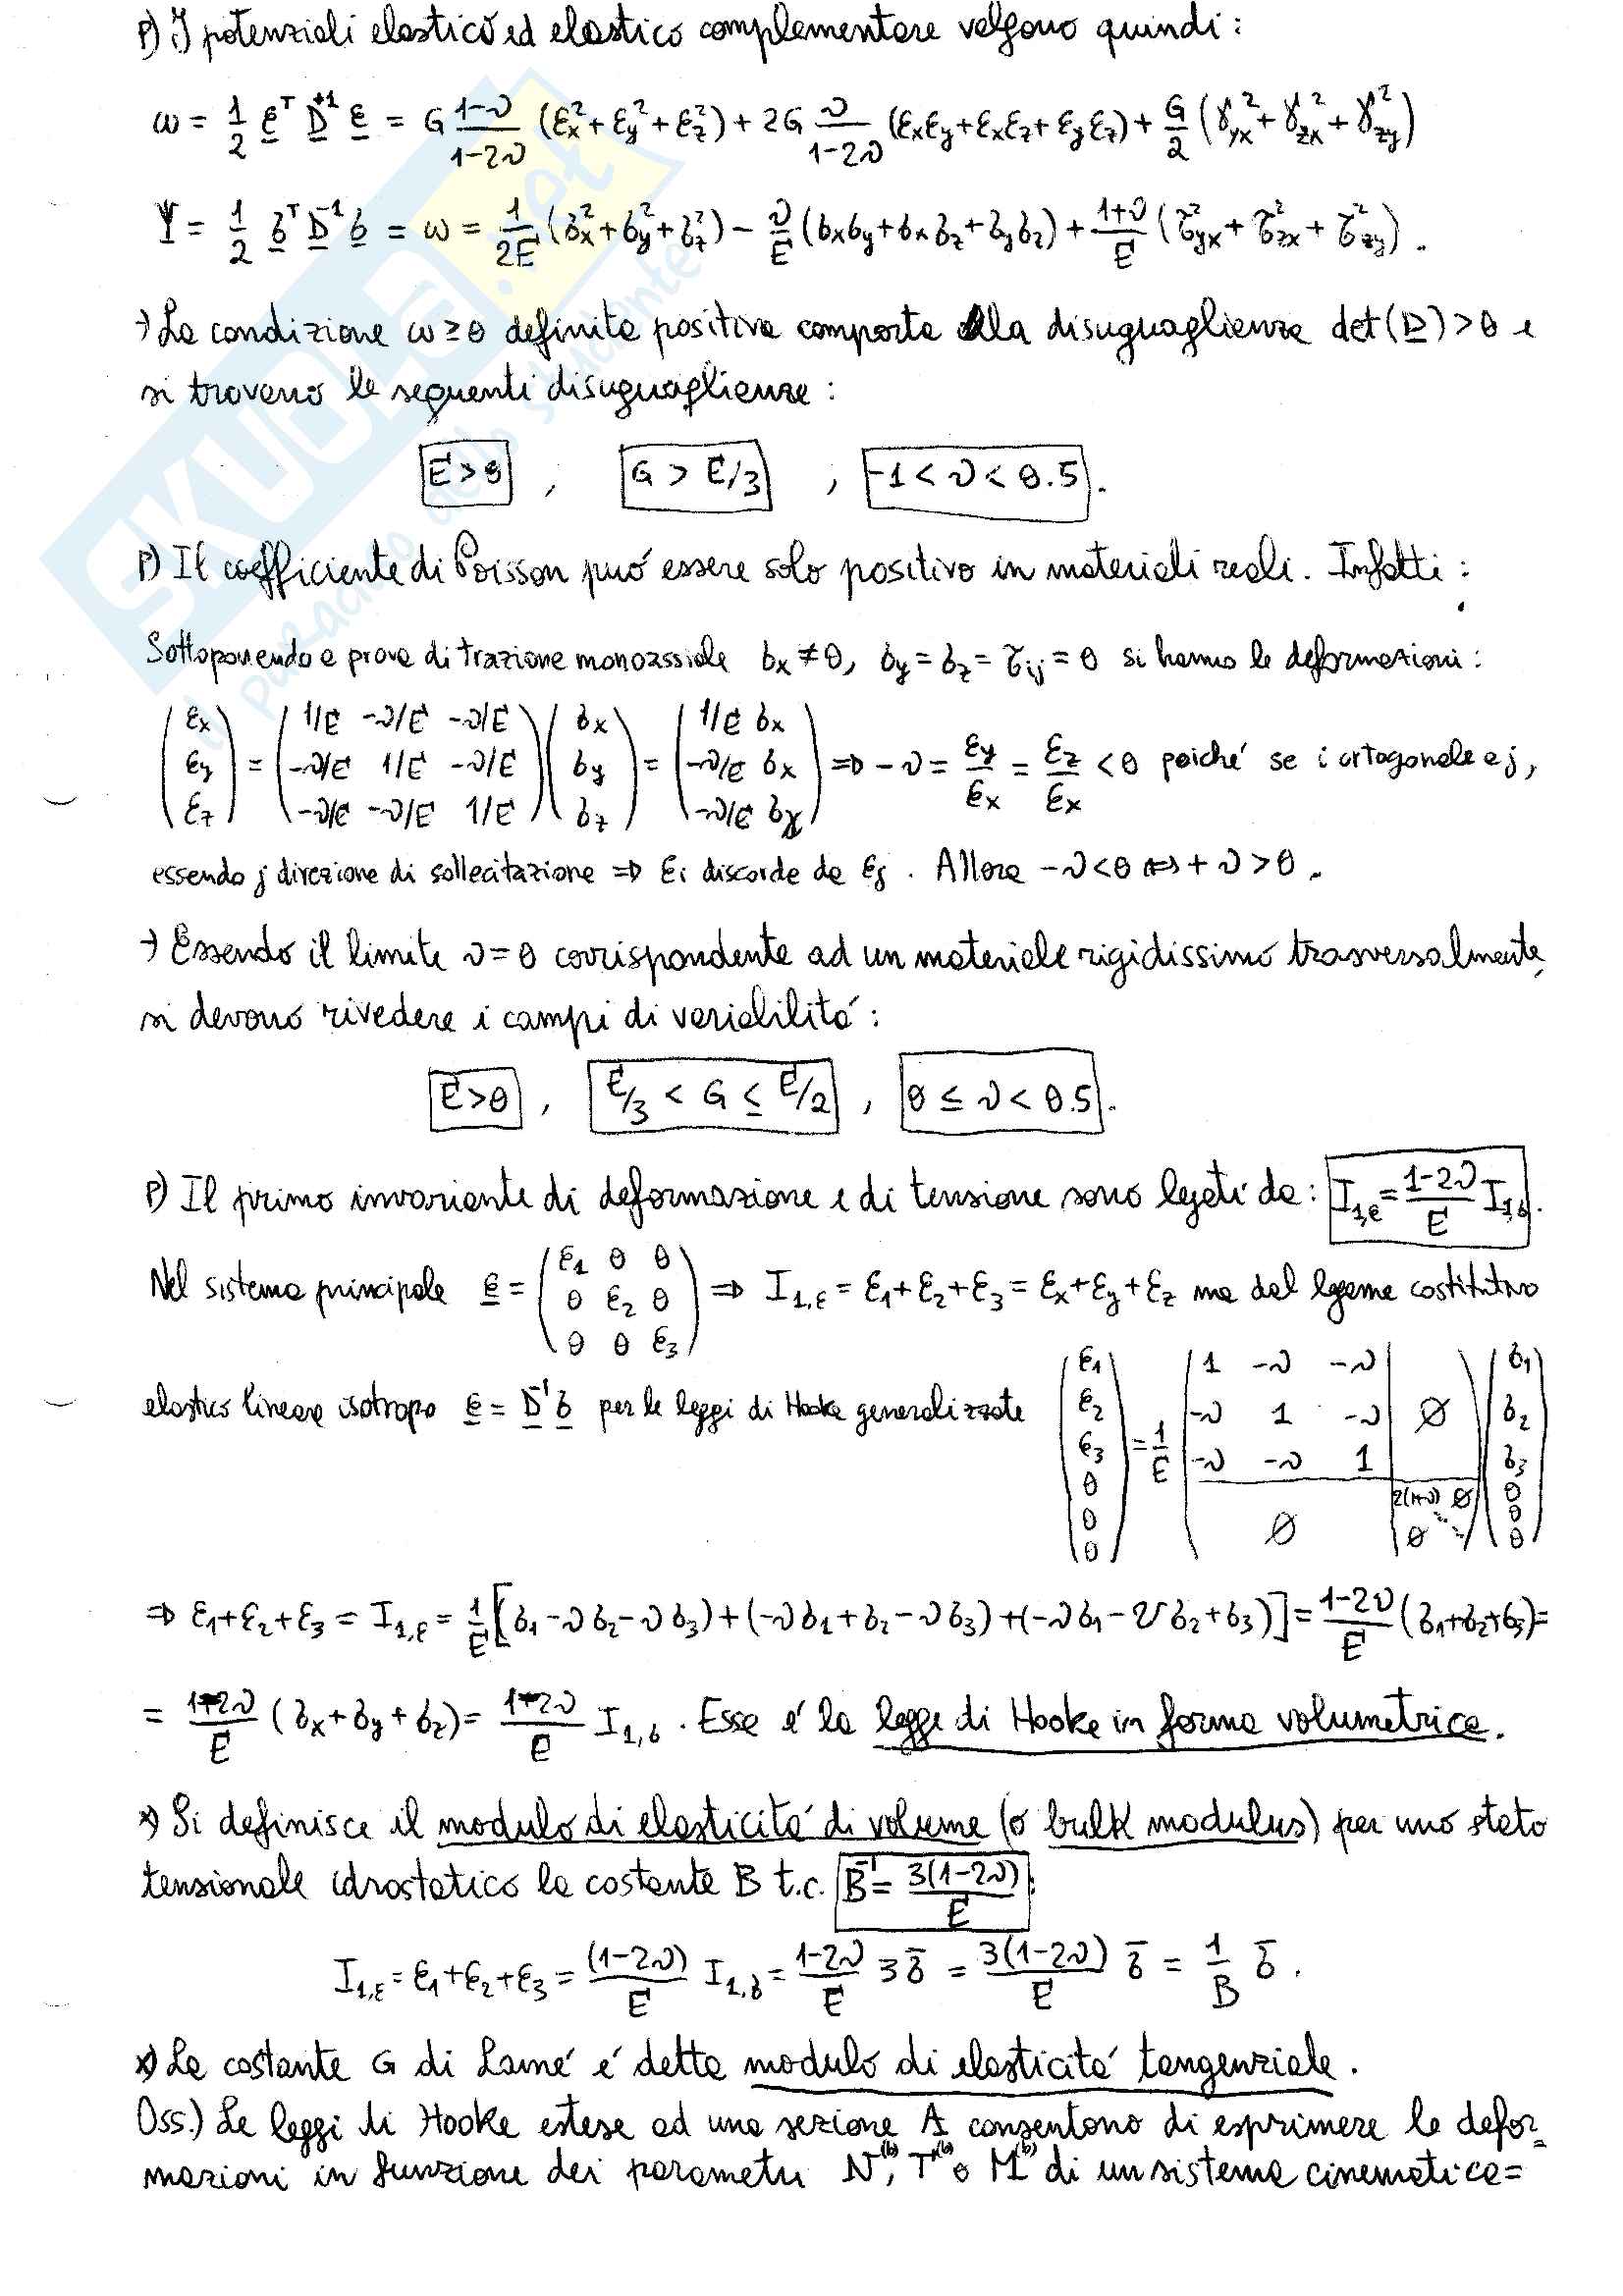 P) I potenziali elastico ed elastico complementare valgono quindi:
ω = 1/2 ε^T D^+1 ε = G (1-ν)/(1-2ν) (εx²+εy²+εz²) + 2G ν/(1-2ν) (εxεy+εxεz+εyεz) + G/2 (γyx²+γzx²+γzy²)
Ψ = 1/2 σ^T D^-1 σ = ω = 1/2E (σx²+σy²+σz²) - ν/E (σxσy+σxσz+σyσz) + (1+ν)/E (τyx²+τzx²+τzy²).
→ La condizione ω≥0 definita positiva comporta alla disuguaglianza det(D)>0 e
si trovano le seguenti disuguaglianze:
E>0 , G > E/3 , -1<ν<0.5.
P) Il coefficiente di Poisson può essere solo positivo in materiali reali. Infatti:
Sottoponendo a prova di trazione monoassiale σx≠0, σy=σz=τij=0 si hanno le deformazioni:
(εx εy εz) = (1/E -ν/E -ν/E; -ν/E 1/E -ν/E; -ν/E -ν/E 1/E)(σx σy σz) = (1/E σx; -ν/E σx; -ν/E σx) ⇒ -ν = εy/εx = εz/εx <0 poiché se i ortogonale a j,
essendo j direzione di sollecitazione ⇒ εi discorde da εj. Allora -ν<0 ⇔ +ν>0.
→ Essendo il limite ν=0 corrispondente ad un materiale rigidissimo trasversalmente,
si devono rivedere i campi di variabilità:
E>0 , E/3 < G ≤ E/2 , 0≤ν<0.5.
P) Il primo invariante di deformazione e di tensione sono legati da: I1,ε = (1-2ν)/E I1,σ.
Nel sistema principale ε = (ε1 0 0; 0 ε2 0; 0 0 ε3) ⇒ I1,ε = ε1+ε2+ε3 = εx+εy+εz ma dal legame costitutivo
elastico lineare isotropo ε = D^-1 σ per le leggi di Hooke generalizzate (ε1 ε2 ε3 0 0 0) = 1/E (1 -ν -ν; -ν 1 -ν; -ν -ν 1 | ∅; ∅ | 2(1+ν) ∅ ∅)(σ1 σ2 σ3 0 0 0)
⇒ ε1+ε2+ε3 = I1,ε = 1/E [σ1-νσ2-νσ3)+(-νσ1+σ2-νσ3)+(-νσ1-νσ2+σ3)] = (1-2ν)/E (σ1+σ2+σ3)=
= (1-2ν)/E (σx+σy+σz) = (1-2ν)/E I1,σ. Essa è la legge di Hooke in forma volumetrica.
x) Si definisce il modulo di elasticità di volume (o bulk modulus) per uno stato
tensionale idrostatico la costante B t.c. B^-1 = 3(1-2ν)/E :
I1,ε = ε1+ε2+ε3 = (1-2ν)/E I1,σ = (1-2ν)/E 3σ̄ = 3(1-2ν)/E σ̄ = 1/B σ̄.
x) La costante G di Lamé é detta modulo di elasticità tangenziale.
Oss.) Le leggi di Hooke estese ad una sezione A consentono di esprimere le defor=
mazioni in funzione dei parametri N^(b), T^(b) e M^(b) di un sistema cinematica=
SKUOLA.net
il paradiso dello studente